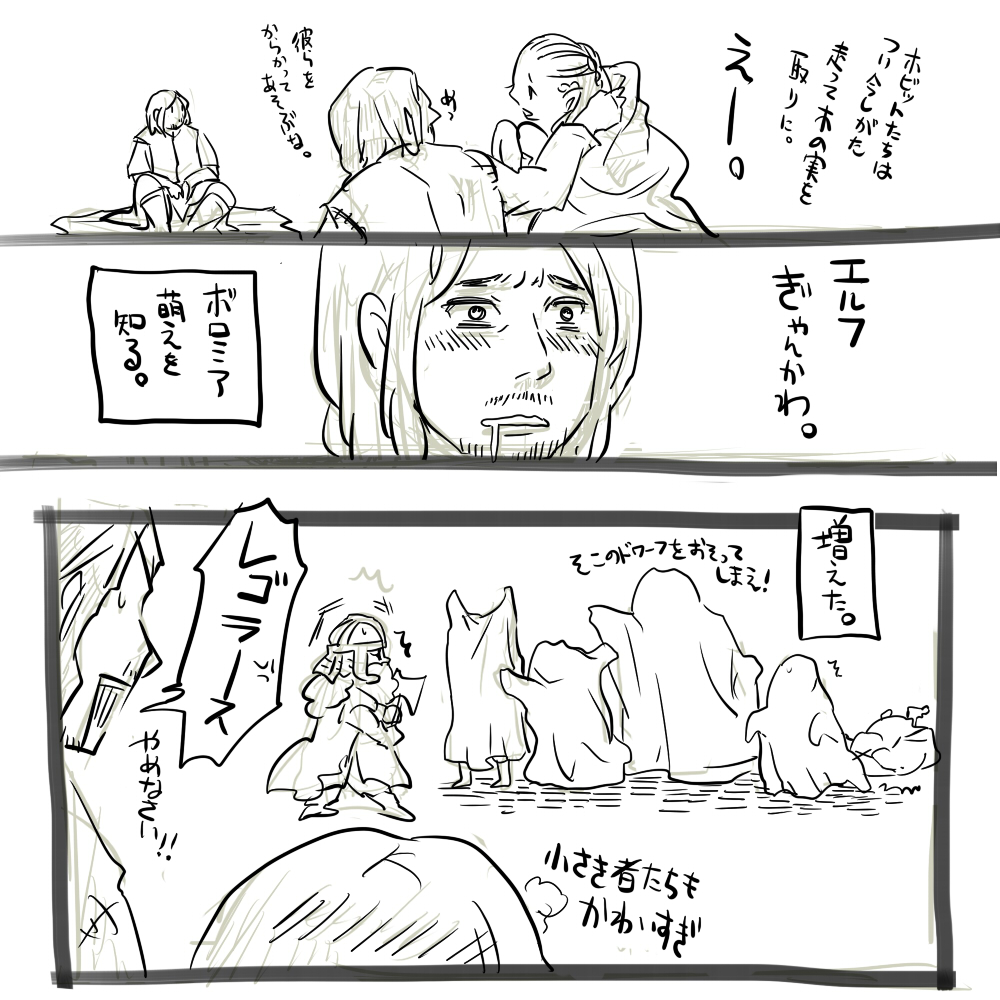 ホビットたちは
つい今しがた
走って木の実を
取りに。
えー。
めっ
彼らを
からかって
あそぶな。
エルフ
ぎゃんかわ。
ボロミア
萌えを
知る。
増えた。
そこのドワーフをおそって
しまえ!
レゴラース
やめなさい!!
小さき者たちも
かわいすぎ